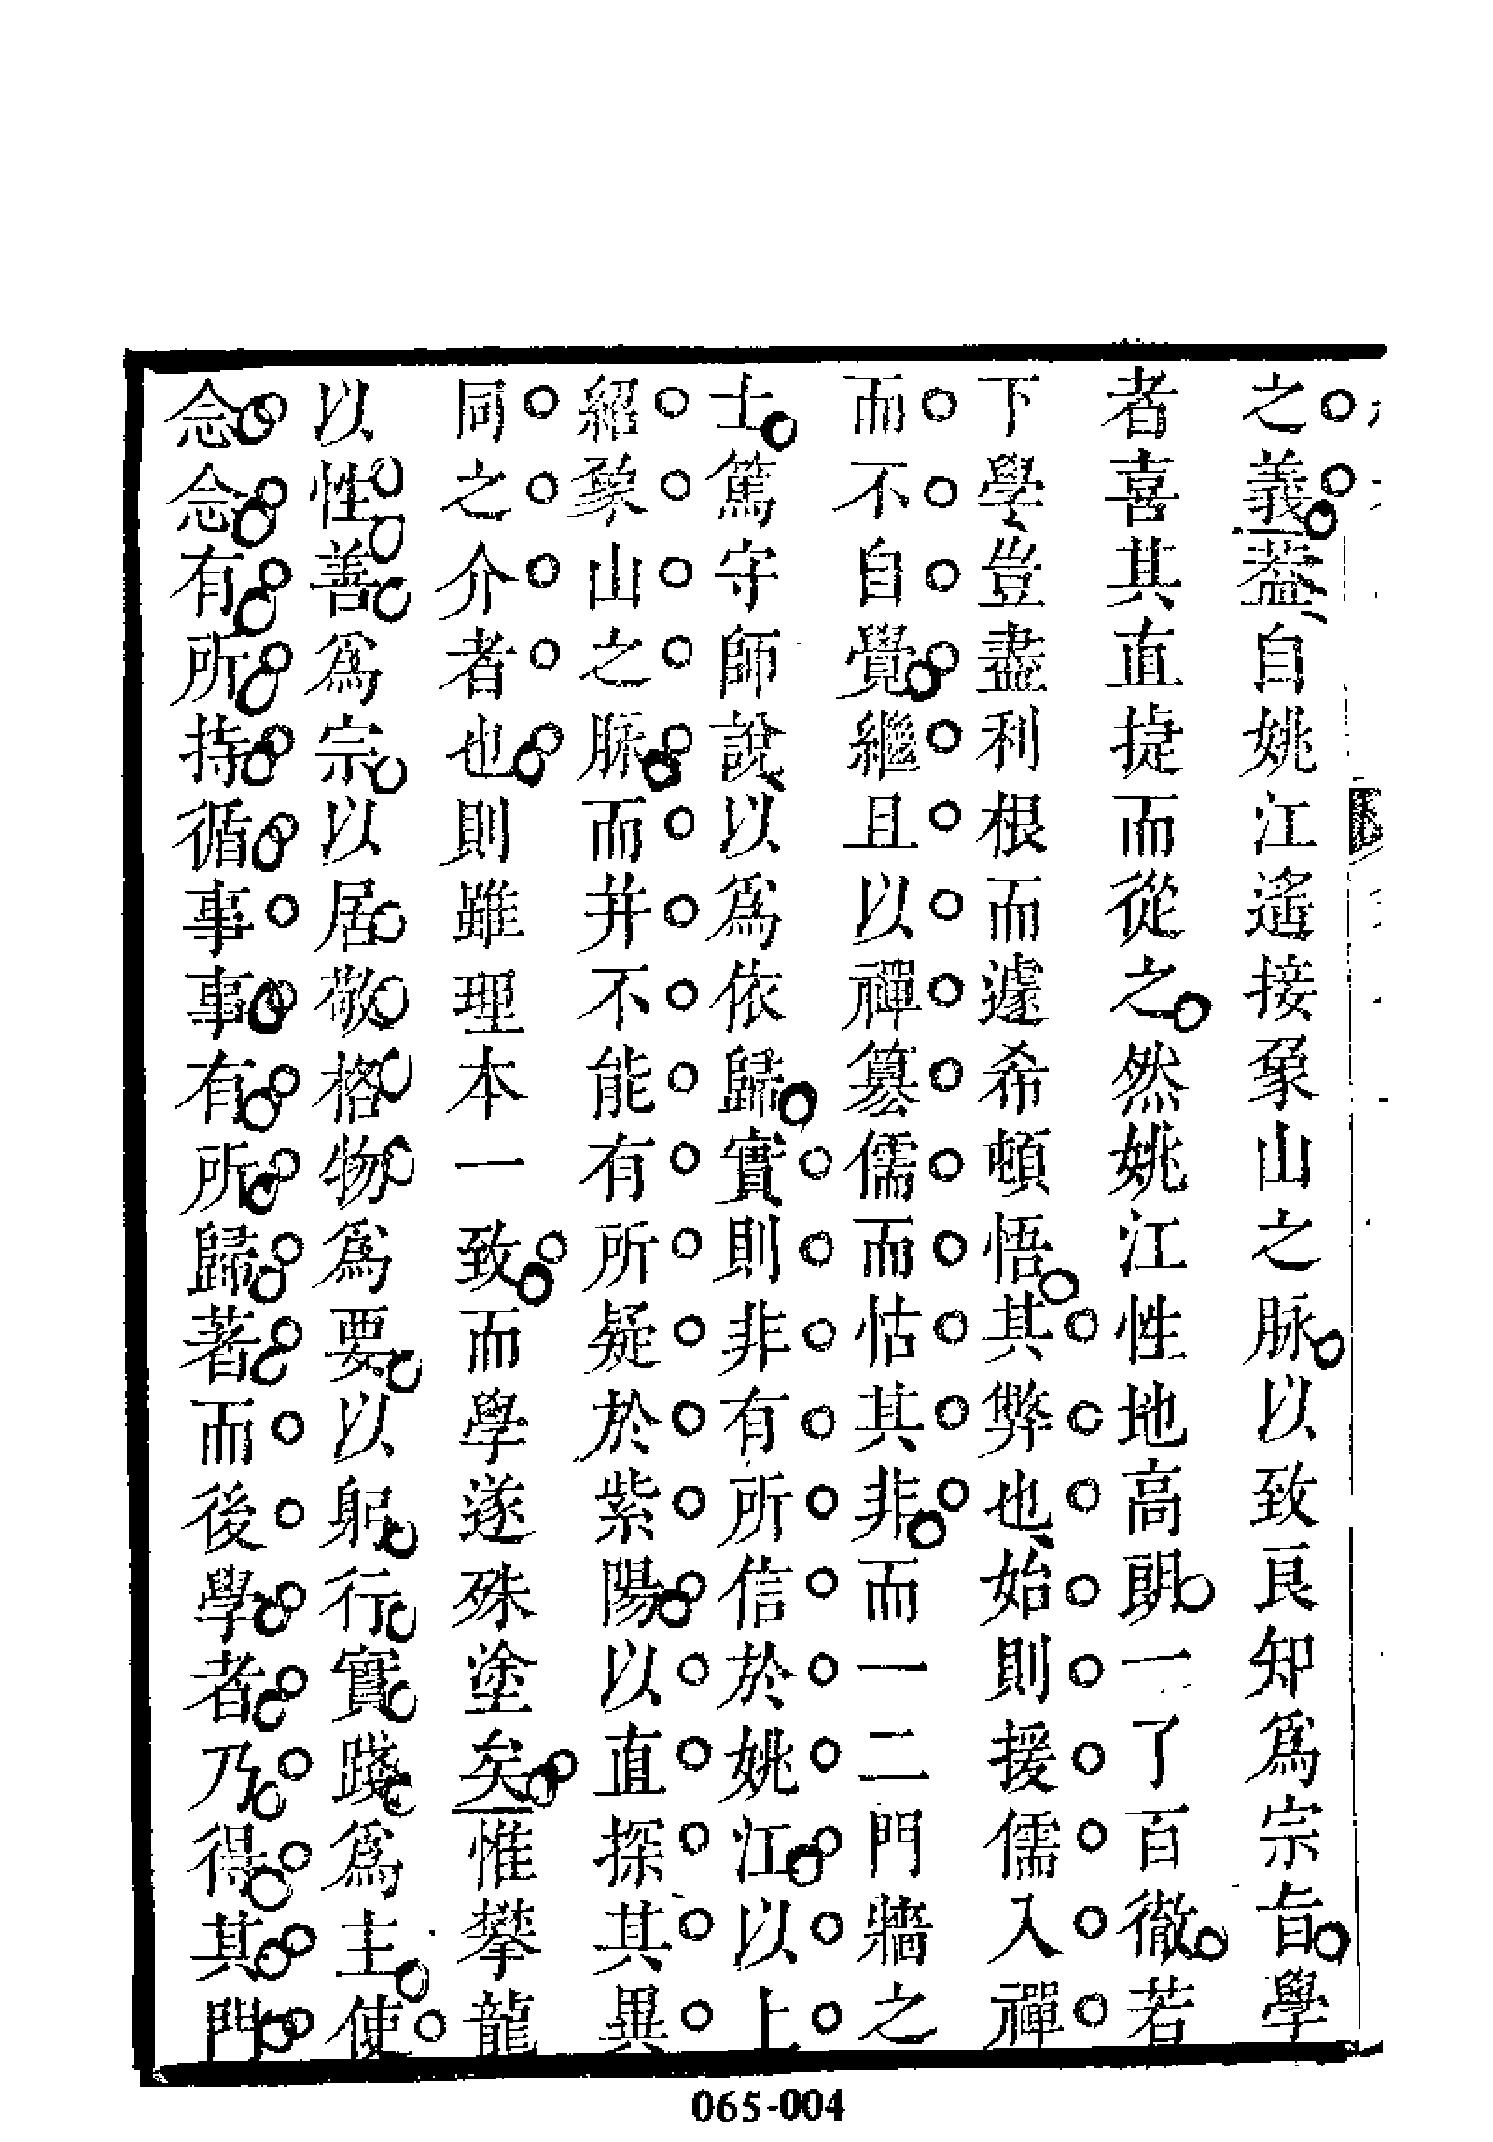 之義蓋自姚江遙接象山之脉以致良知爲宗旨學
者喜其直捷而從之然姚江性地高朗一了百徹若
下學豈盡利根而遽希頓悟其弊也始則援儒入禪
而不自覺繼且以禪簒儒而怙其非而一二門牆之
士篤守師說以爲依歸實則非有所信於姚江以上
紹象山之脉而并不能有所疑於紫陽以直探其異
同之介者也則雖理本一致而學遂殊塗矣惟攀龍
以性善爲宗以居敬格物爲要以躬行實踐爲主使
念念有所持循事事有所歸著而後學者乃得其門
065-004